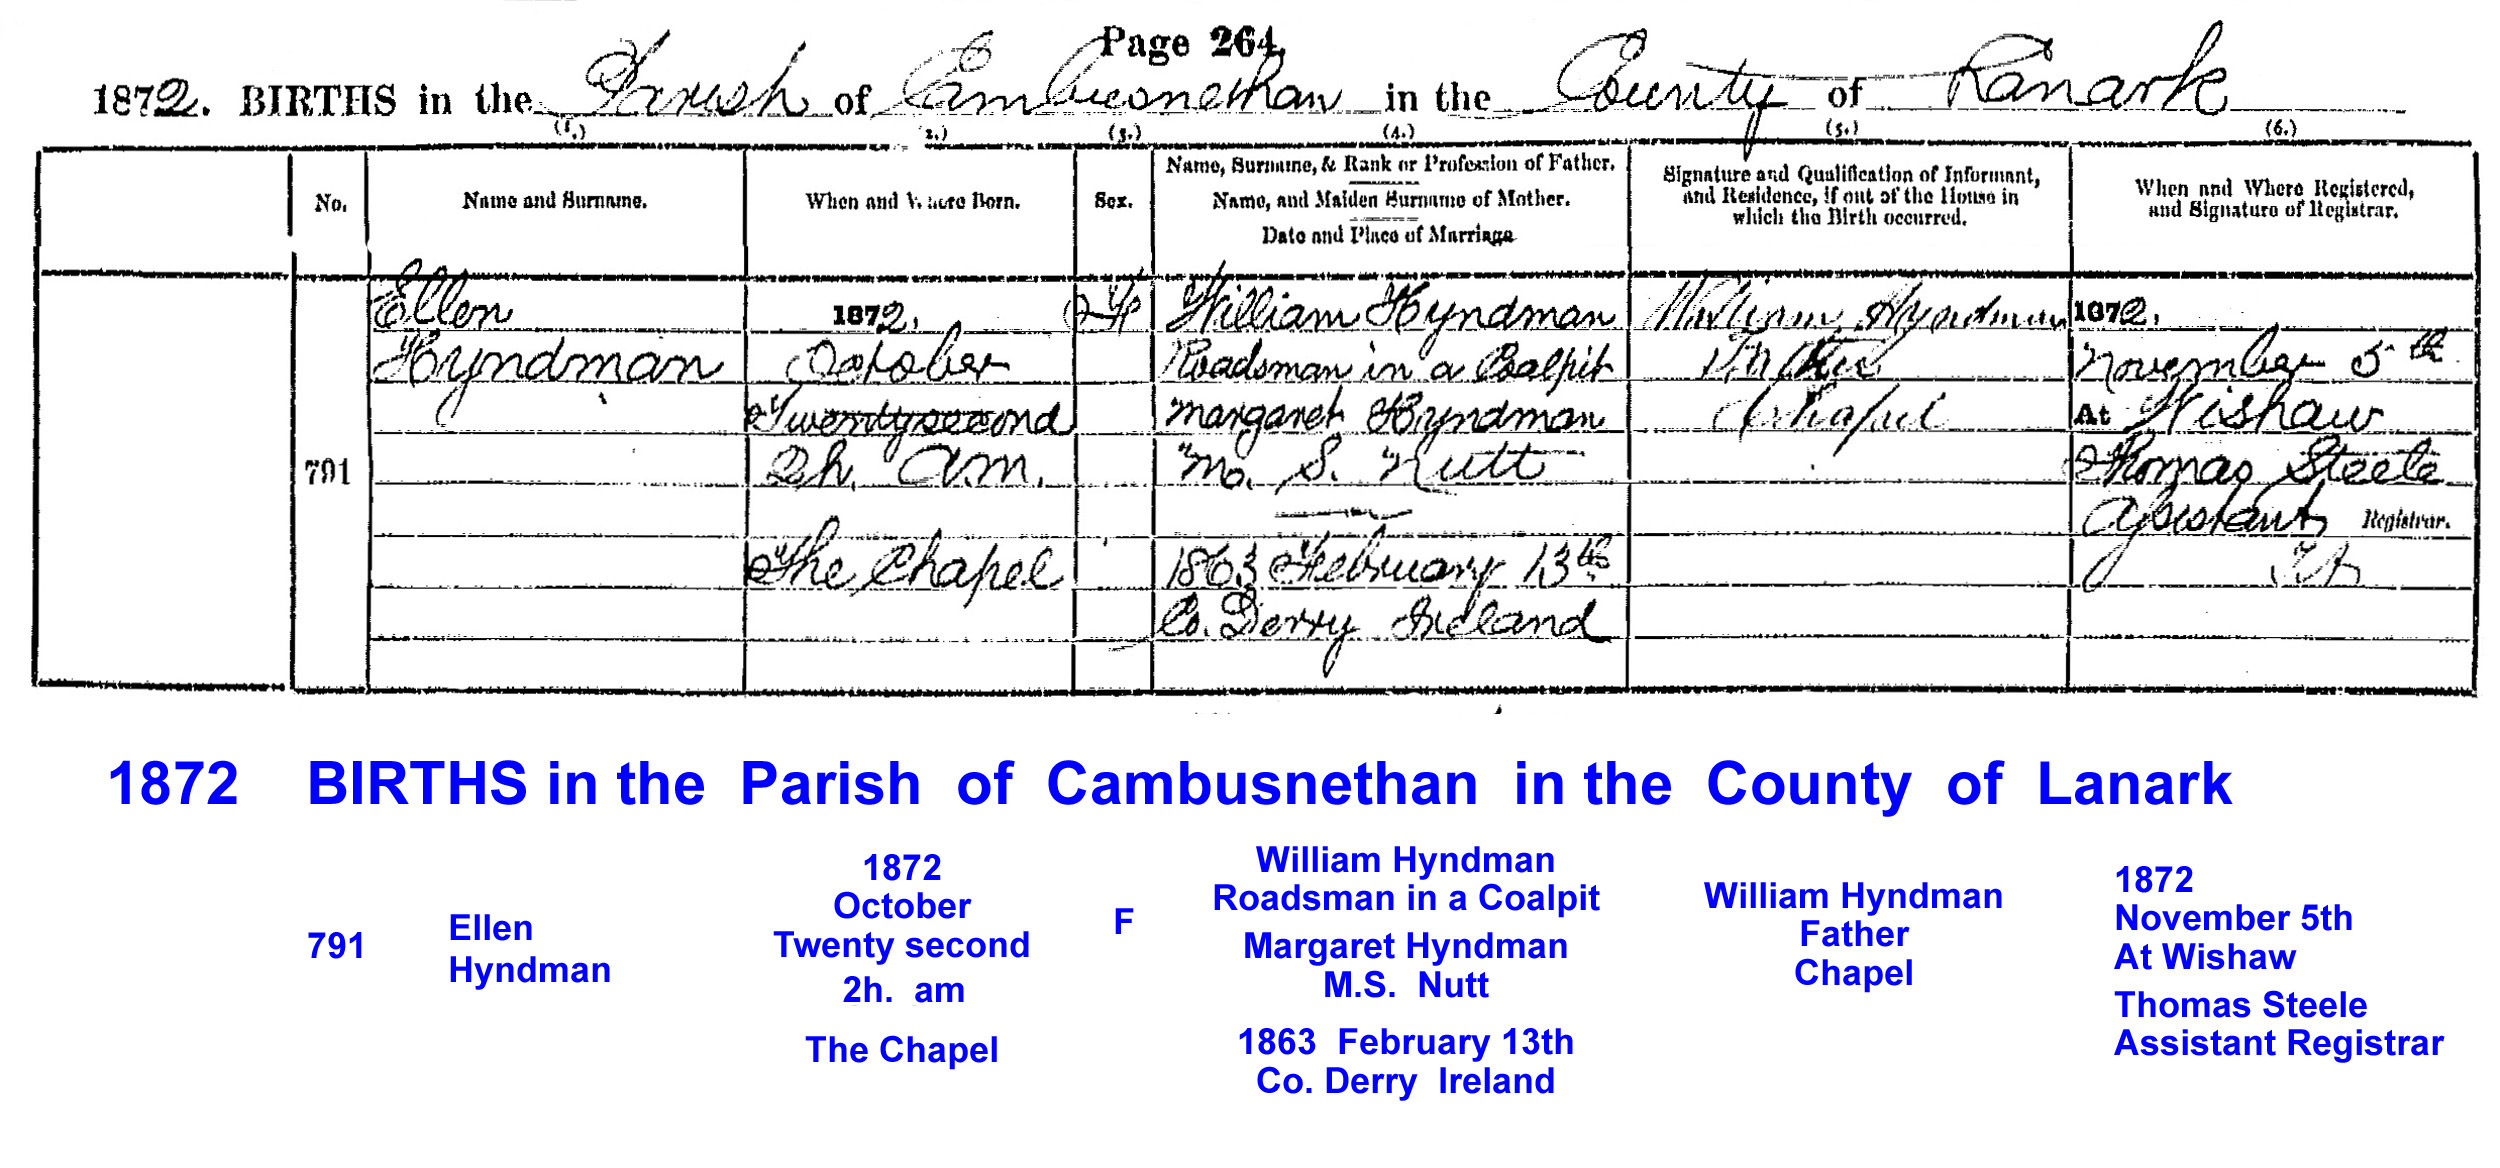 Page 264.
1872. BIRTHS in the Parish of Cambusnethan in the County of Lanark
(1.) 2.) (3.) (4.) (5.) (6.)
No.
Name and Surname.
When and Where Born.
Sex.
Name, Surname, & Rank or Profession of Father.
Name, and Maiden Surname of Mother.
Date and Place of Marriage
Signature and Qualification of Informant,
and Residence, if out of the House in
which the Birth occurred.
When and Where Registered,
and Signature of Registrar.
791
Ellen
Hyndman
1872.
October
Twenty second
2h. A.M.
The Chapel
F
William Hyndman
Roadsman in a Coalpit
Margaret Hyndman
M. S. Nutt
1863 February 13th
Co. Derry Ireland
William Hyndman
Father
Chapel
1872.
November 5th
At Wishaw
Thomas Steele
Assistant Registrar.
1872 BIRTHS in the Parish of Cambusnethan in the County of Lanark
791
Ellen
Hyndman
1872
October
Twenty second
2h. am
The Chapel
F
William Hyndman
Roadsman in a Coalpit
Margaret Hyndman
M.S. Nutt
1863 February 13th
Co. Derry Ireland
William Hyndman
Father
Chapel
1872
November 5th
At Wishaw
Thomas Steele
Assistant Registrar